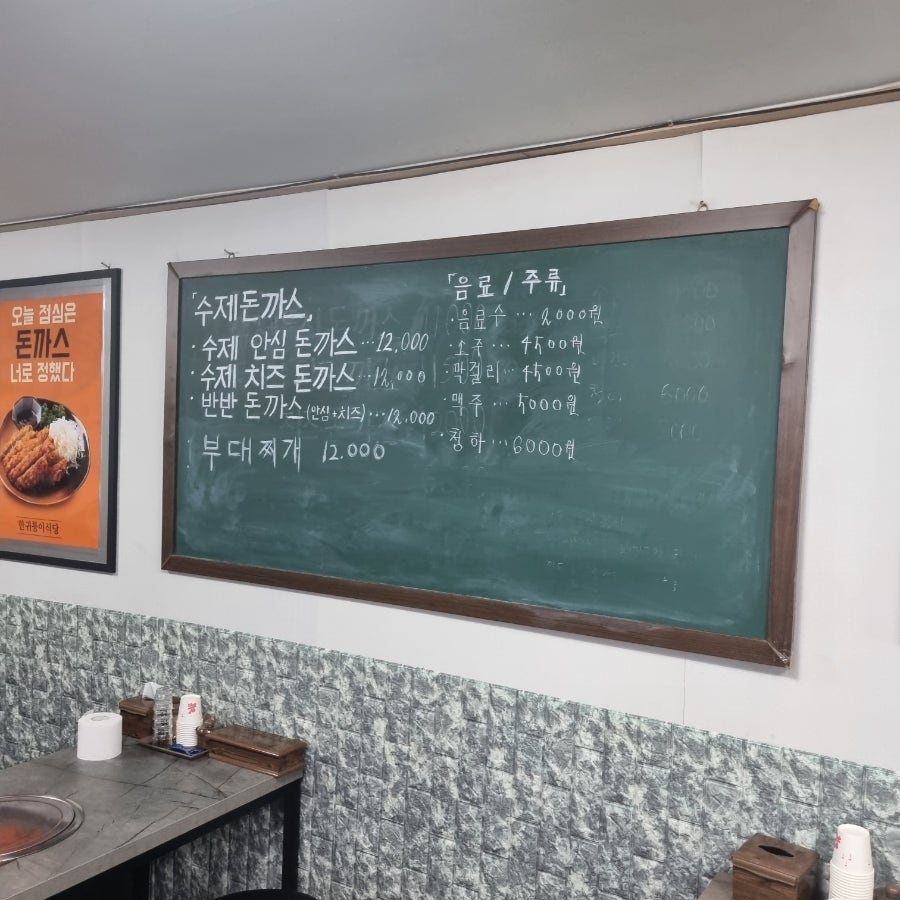 오늘 점심은
돈까스
너로 정했다
한귀퉁이식당
「수제돈까스」
· 수제 안심 돈까스 ···12,000
· 수제 치즈 돈까스 ···12,000
· 반반 돈까스 (안심+치즈) ···12,000
· 부대찌개 12.000
「음료 / 주류」
· 음료수 ··· 2,000원
· 소주 ··· 4500원
· 막걸리 ··· 4500원
· 맥주 ··· 5000원
· 청하 ··· 6000원